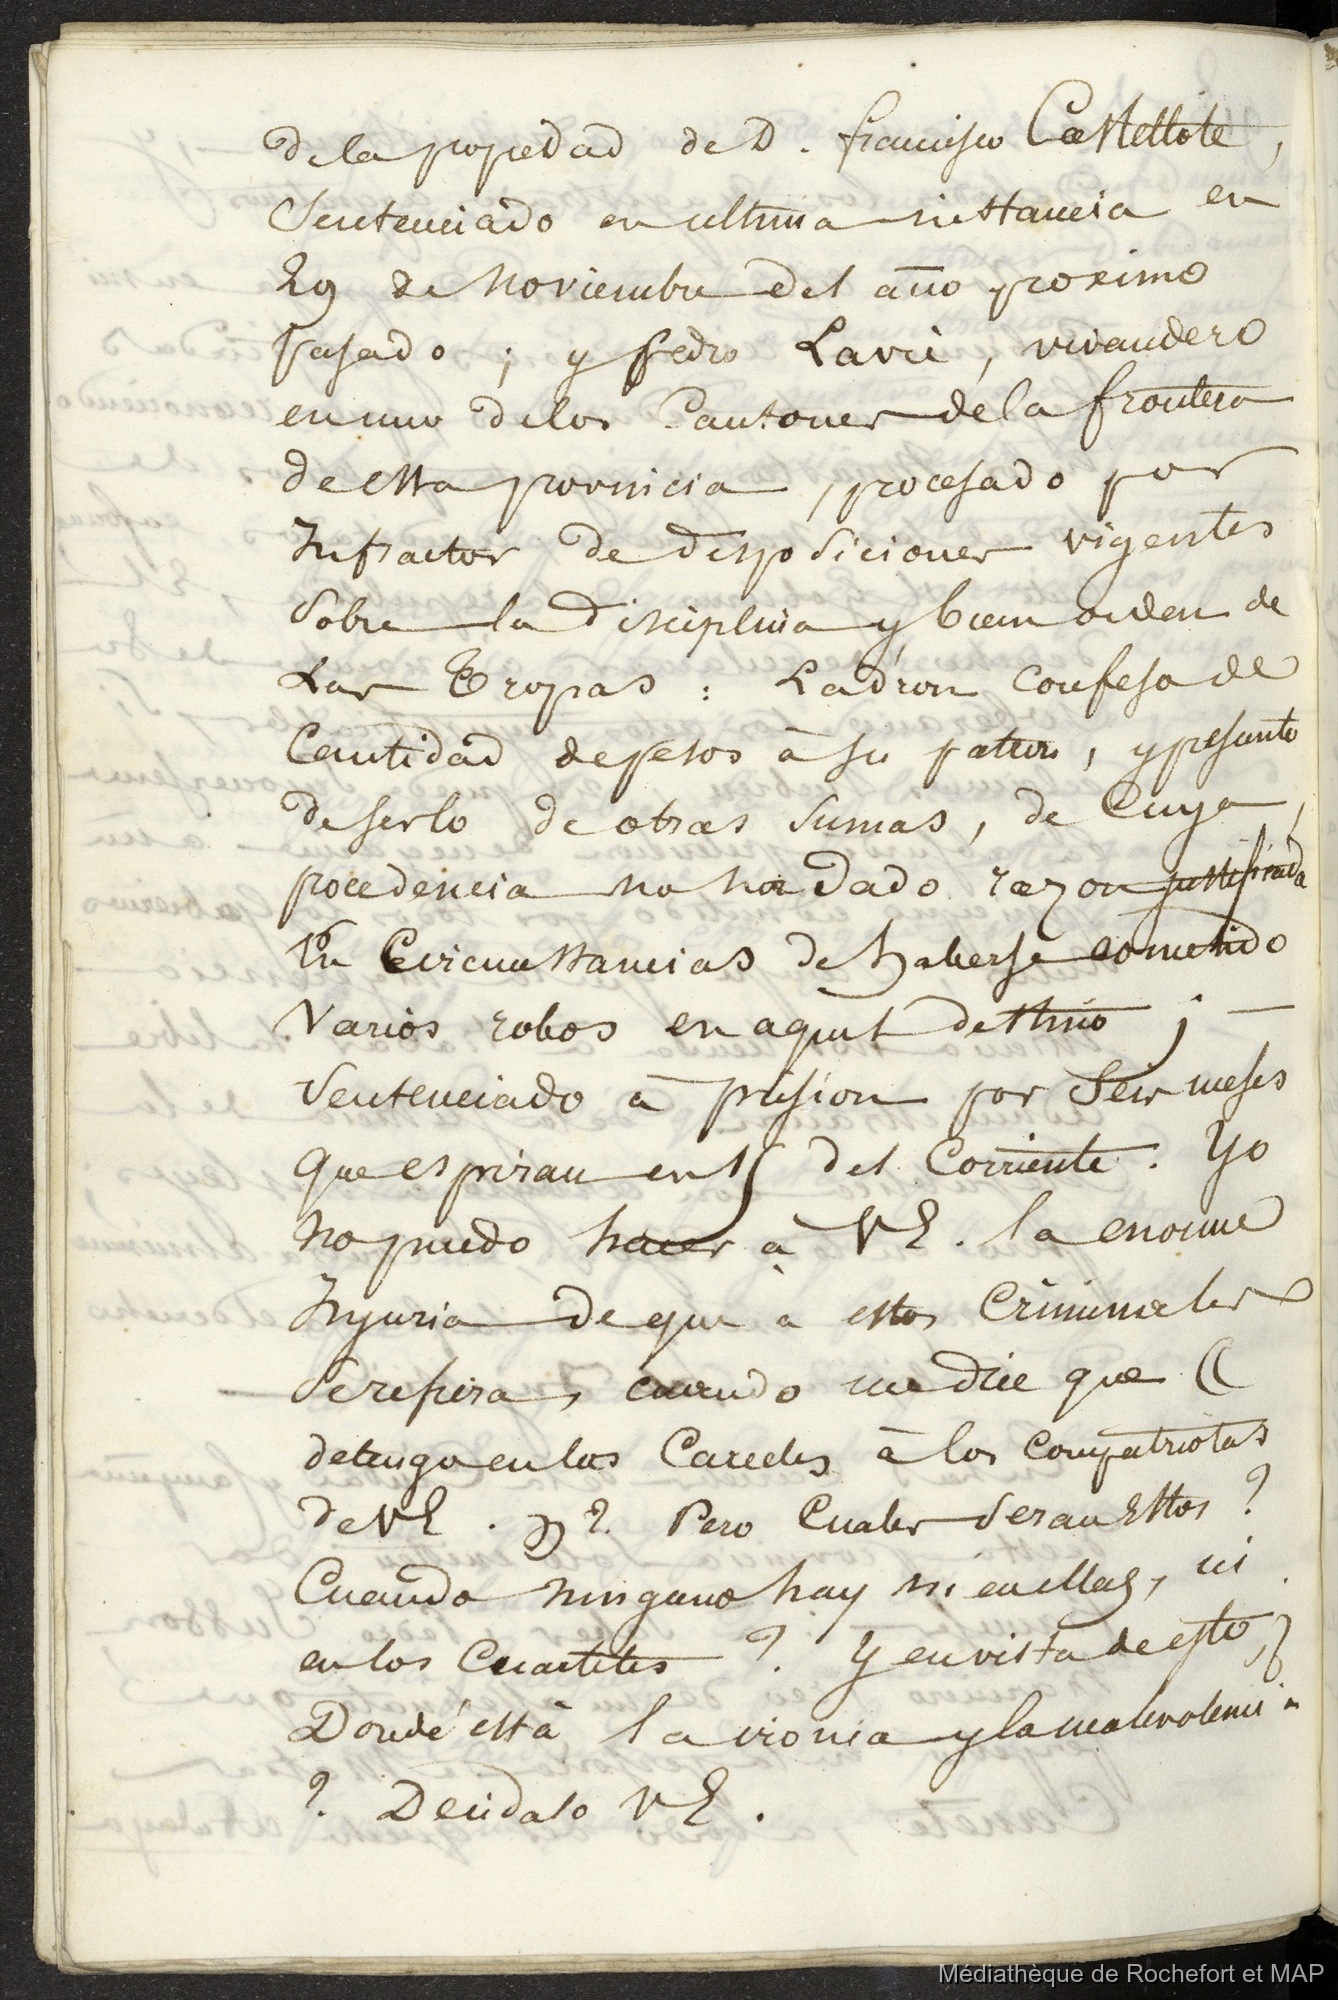 de la propiedad de D. francisco Castellote,
Sentenciado en ultima instancia en
29 de Noviembre del año proximo
pasado ; y Pedro Lavié, vivandero
en uno de los Cantones de la frontera
de esta provincia, procesado por
Infractor de disposiciones vigentes
sobre la disciplina y buen orden de
Las Tropas : Ladron confeso de
Cantidad de pesos à su patron, y presunto
de serlo de otras sumas, de Cuya,
procedencia no ha dado razon justificada
En Circunstancias de haberse cometido
Varios robos en aquel destino ; —
Sentenciado à prision por Seis meses
que espiran en 15 del Corriente. Yo
no puedo hacer à VE. la enorme
Injuria de que à estos Criminales
Se refiera, cuando me dice que ((
detengo en las Carceles à los Compatriotas
de VE. )) ?. Pero Cuales seran Estos ?
Cuando ninguno hay ni en ellas, ni
en los Cuarteles ? Y en vista de esto,
Donde està la ironia y la malevolencia
? Decidalo VE.
Médiathèque de Rochefort et MAP